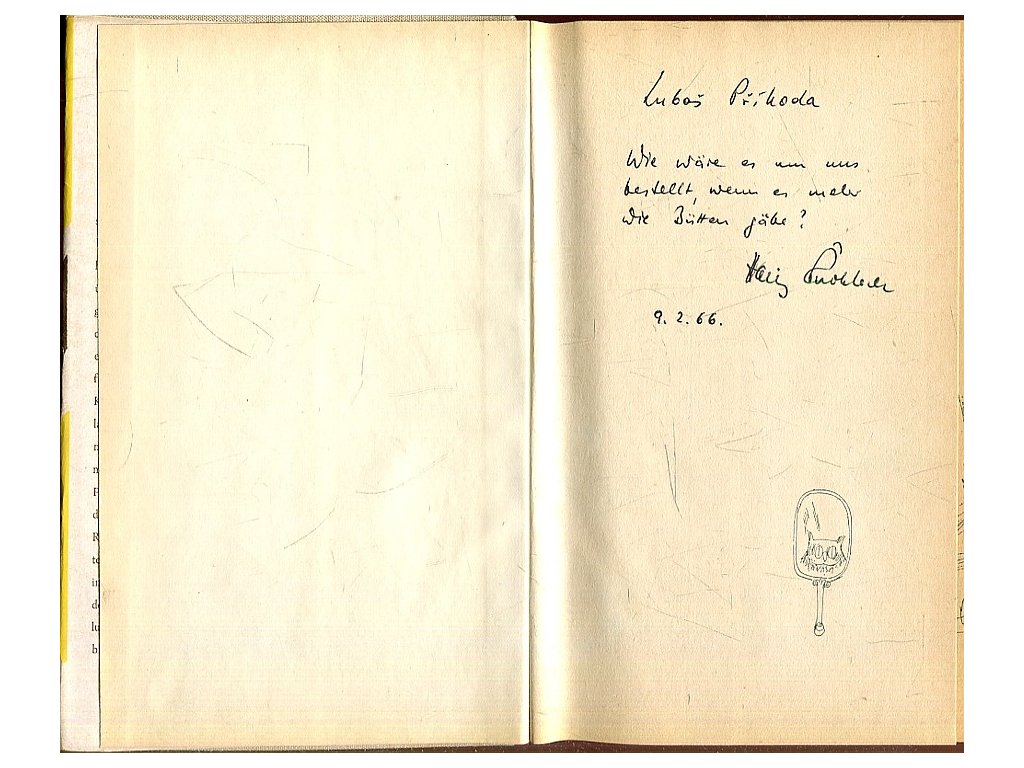 Luboš Příhoda
Wie wäre es um uns
bestellt, wenn es mehr
wie Bütten gäbe?
Heinz Knobloch
9. 2. 66.